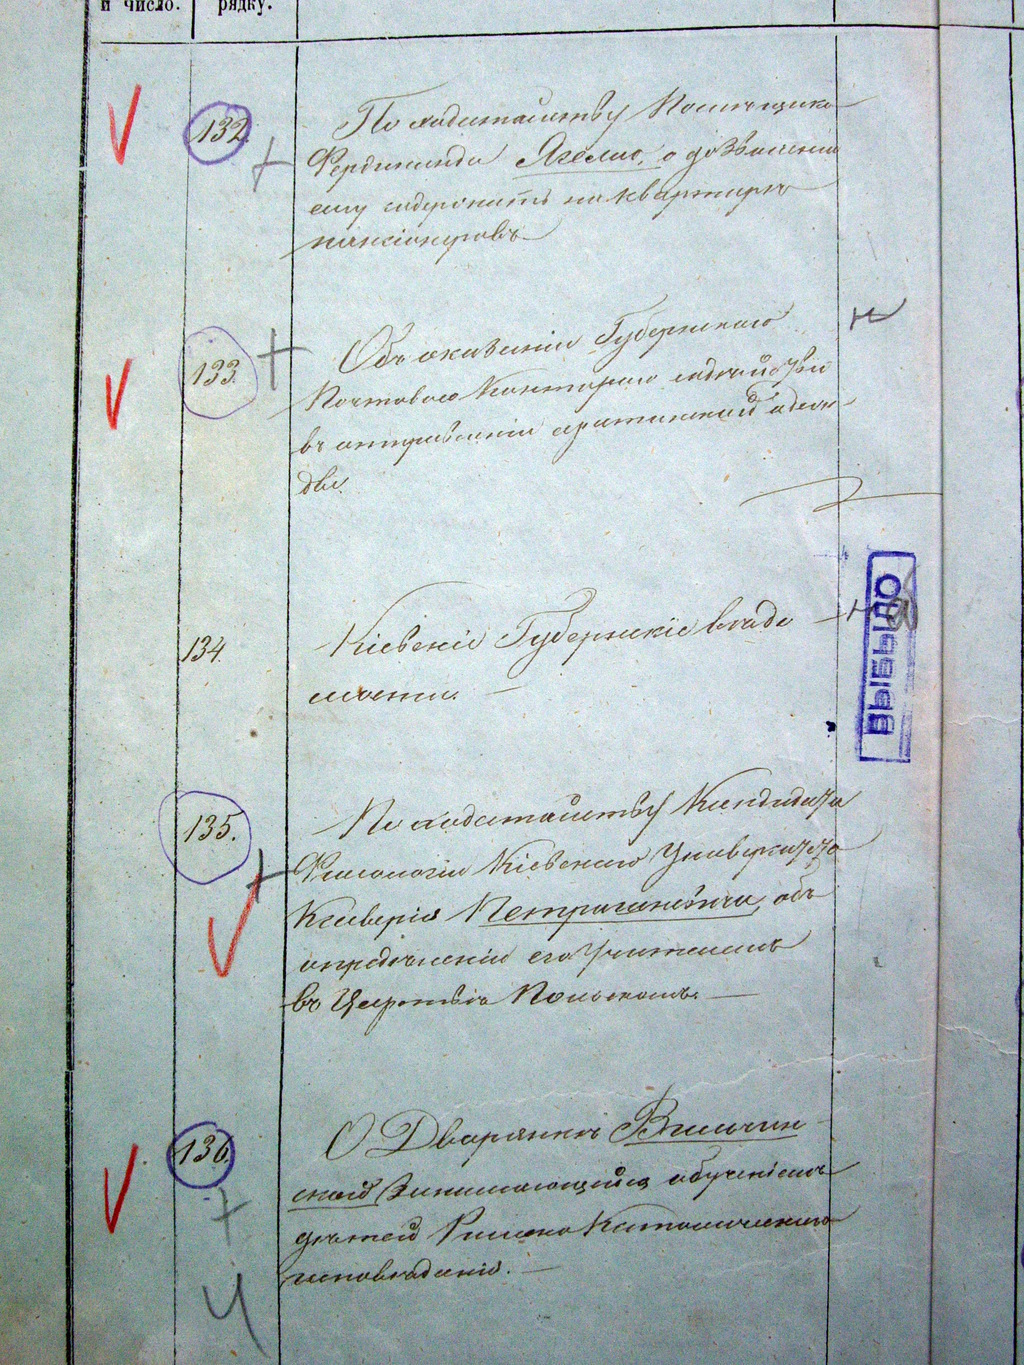 и число.
рядку.
132.
По ходатайству Помещика
Фердинанда Ягелло, о дозволеніи
ему содержать на квартире
пансіонеровъ
133.
Объ оказаніи Губернскою
Почтовою Конторою содействія
въ отправленіи
134.
Кіевскіе Губернскіе ведо
мости.
ВЫБЫЛО
135.
По ходатайству Кандидата
Филологіи Кіевскаго Университета
Ксаверія Петрашкевича, объ
определеніи его Учителемъ
въ Царстве Польскомъ.
136.
О Дворянке Вильчин
ской Занимающейся обученіемъ
детей Римско Католическаго
исповеданія.